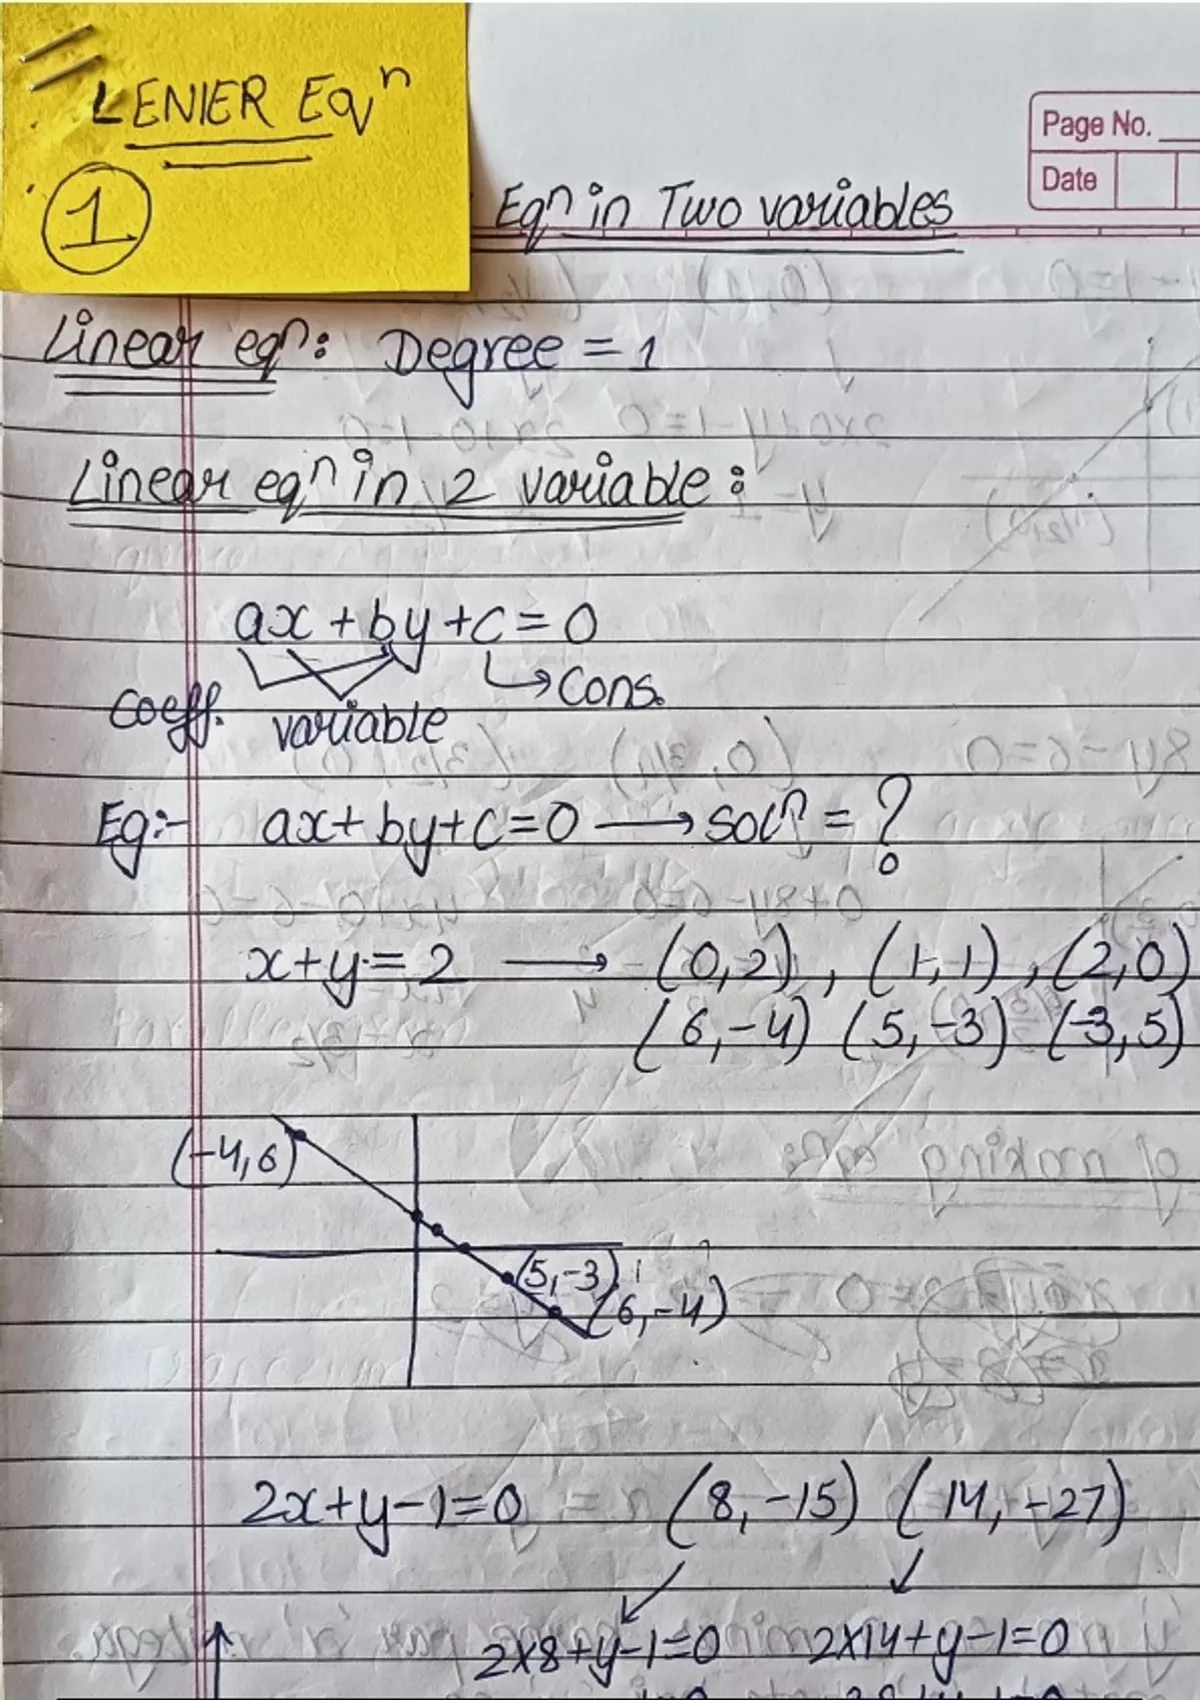 LENIER Eqⁿ
1
Page No.
Date
Eqⁿ in Two variables
Linear eqⁿ: Degree = 1
Linear eqⁿ in 2 variable:
ax + by + c = 0
Coeff. variable Cons.
Eg:- ax + by + c = 0 → solⁿ = ?
x + y = 2 → (0,2), (1,1), (2,0)
(6,-4) (5,-3) (-3,5)
(-4,6)
(5,-3)
(6,-4)
2x + y - 1 = 0 = (8,-15) (14,-27)
2x8+y-1=0 2x14+y-1=0